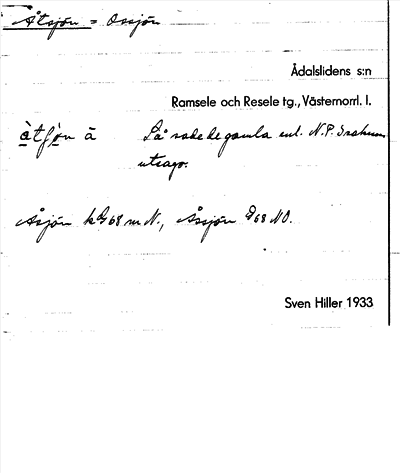 Åtsjön = Ossjön
Ådalslidens s:n
Ramsele och Resele tg., Västernorrl. l.
àtʃo̱n ā Så sade de gamla enl. N.P.
utsago.
Åsjön 68 m N., Åssjön 68 NO.
Sven Hiller 1933